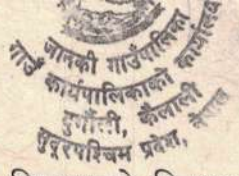 जानकी गाउँपालिका
गाउँ कार्यपालिकाको कार्यालय
दुर्गौली, कैलाली
सुदूरपश्चिम प्रदेश, नेपाल